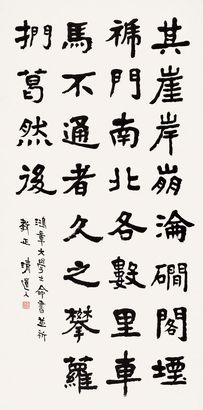 其崖岸崩淪磵閣堙
褫門南北各數里車
馬不通者久之攀蘿
捫葛然後
鴻章大學士命書並祈
教正 清道人